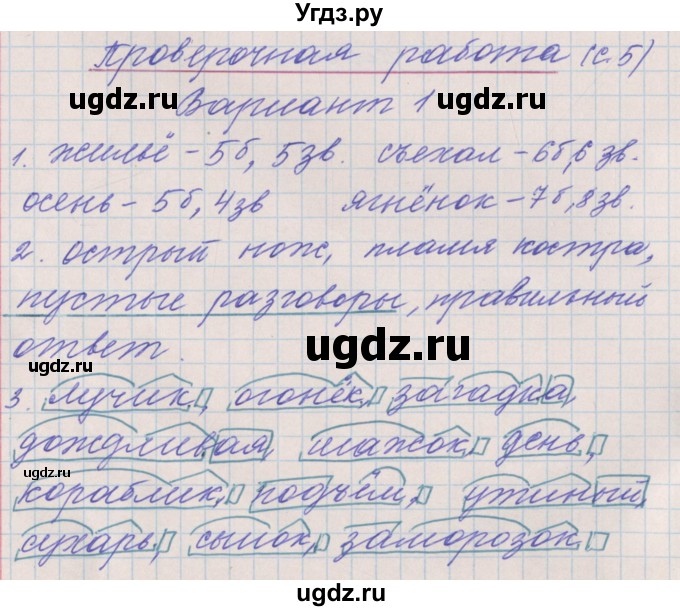 Угдз.ру
Проверочная работа (с.5)
ugdz.ru ugdz.ru
Вариант 1
1. жильё - 5б, 5зв. съехал - 6б, 6 зв.
осень - 5б, 4зв ягнёнок - 7б, 8зв.
2. острый нож, пламя костра,
пустые разговоры, правильный
ответ.
ugdz.ru ugdz.ru
3. лучик, огонёк, загадка,
дождливая, шажок, день,
ugdz.ru
кораблик, подъём, ужиный,
сухарь, сынок, заморозок
ugdz.ru ugdz.ru
Угдз.ру